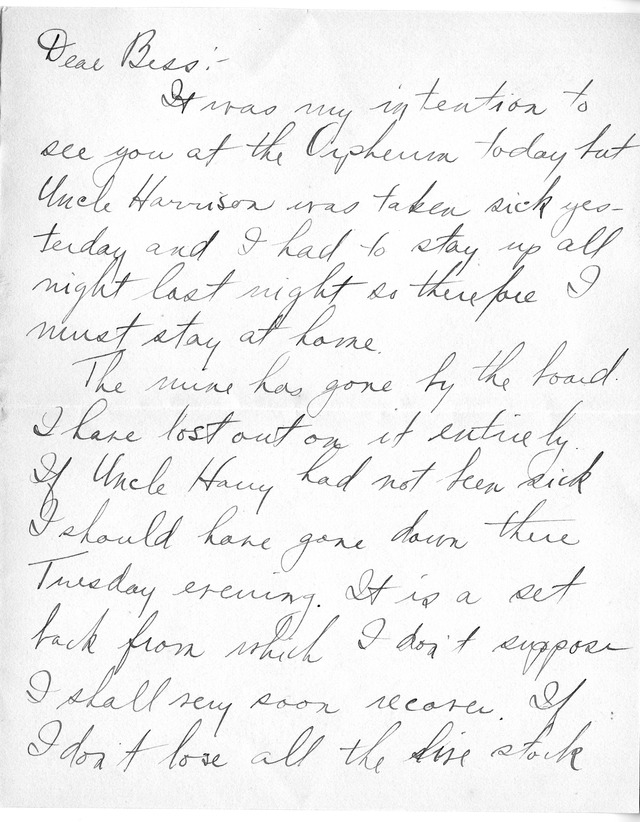 Dear Bess:-
It was my intention to
see you at the Orpheum today but
Uncle Harrison was taken sick yes-
terday and I had to stay up all
night last night so therefore I
must stay at home.
The mine has gone by the board.
I have lost out on it entirely.
If Uncle Harry had not been sick
I should have gone down there
Tuesday evening. It is a set
back from which I don't suppose
I shall very soon recover. If
I don't lose all the live stock